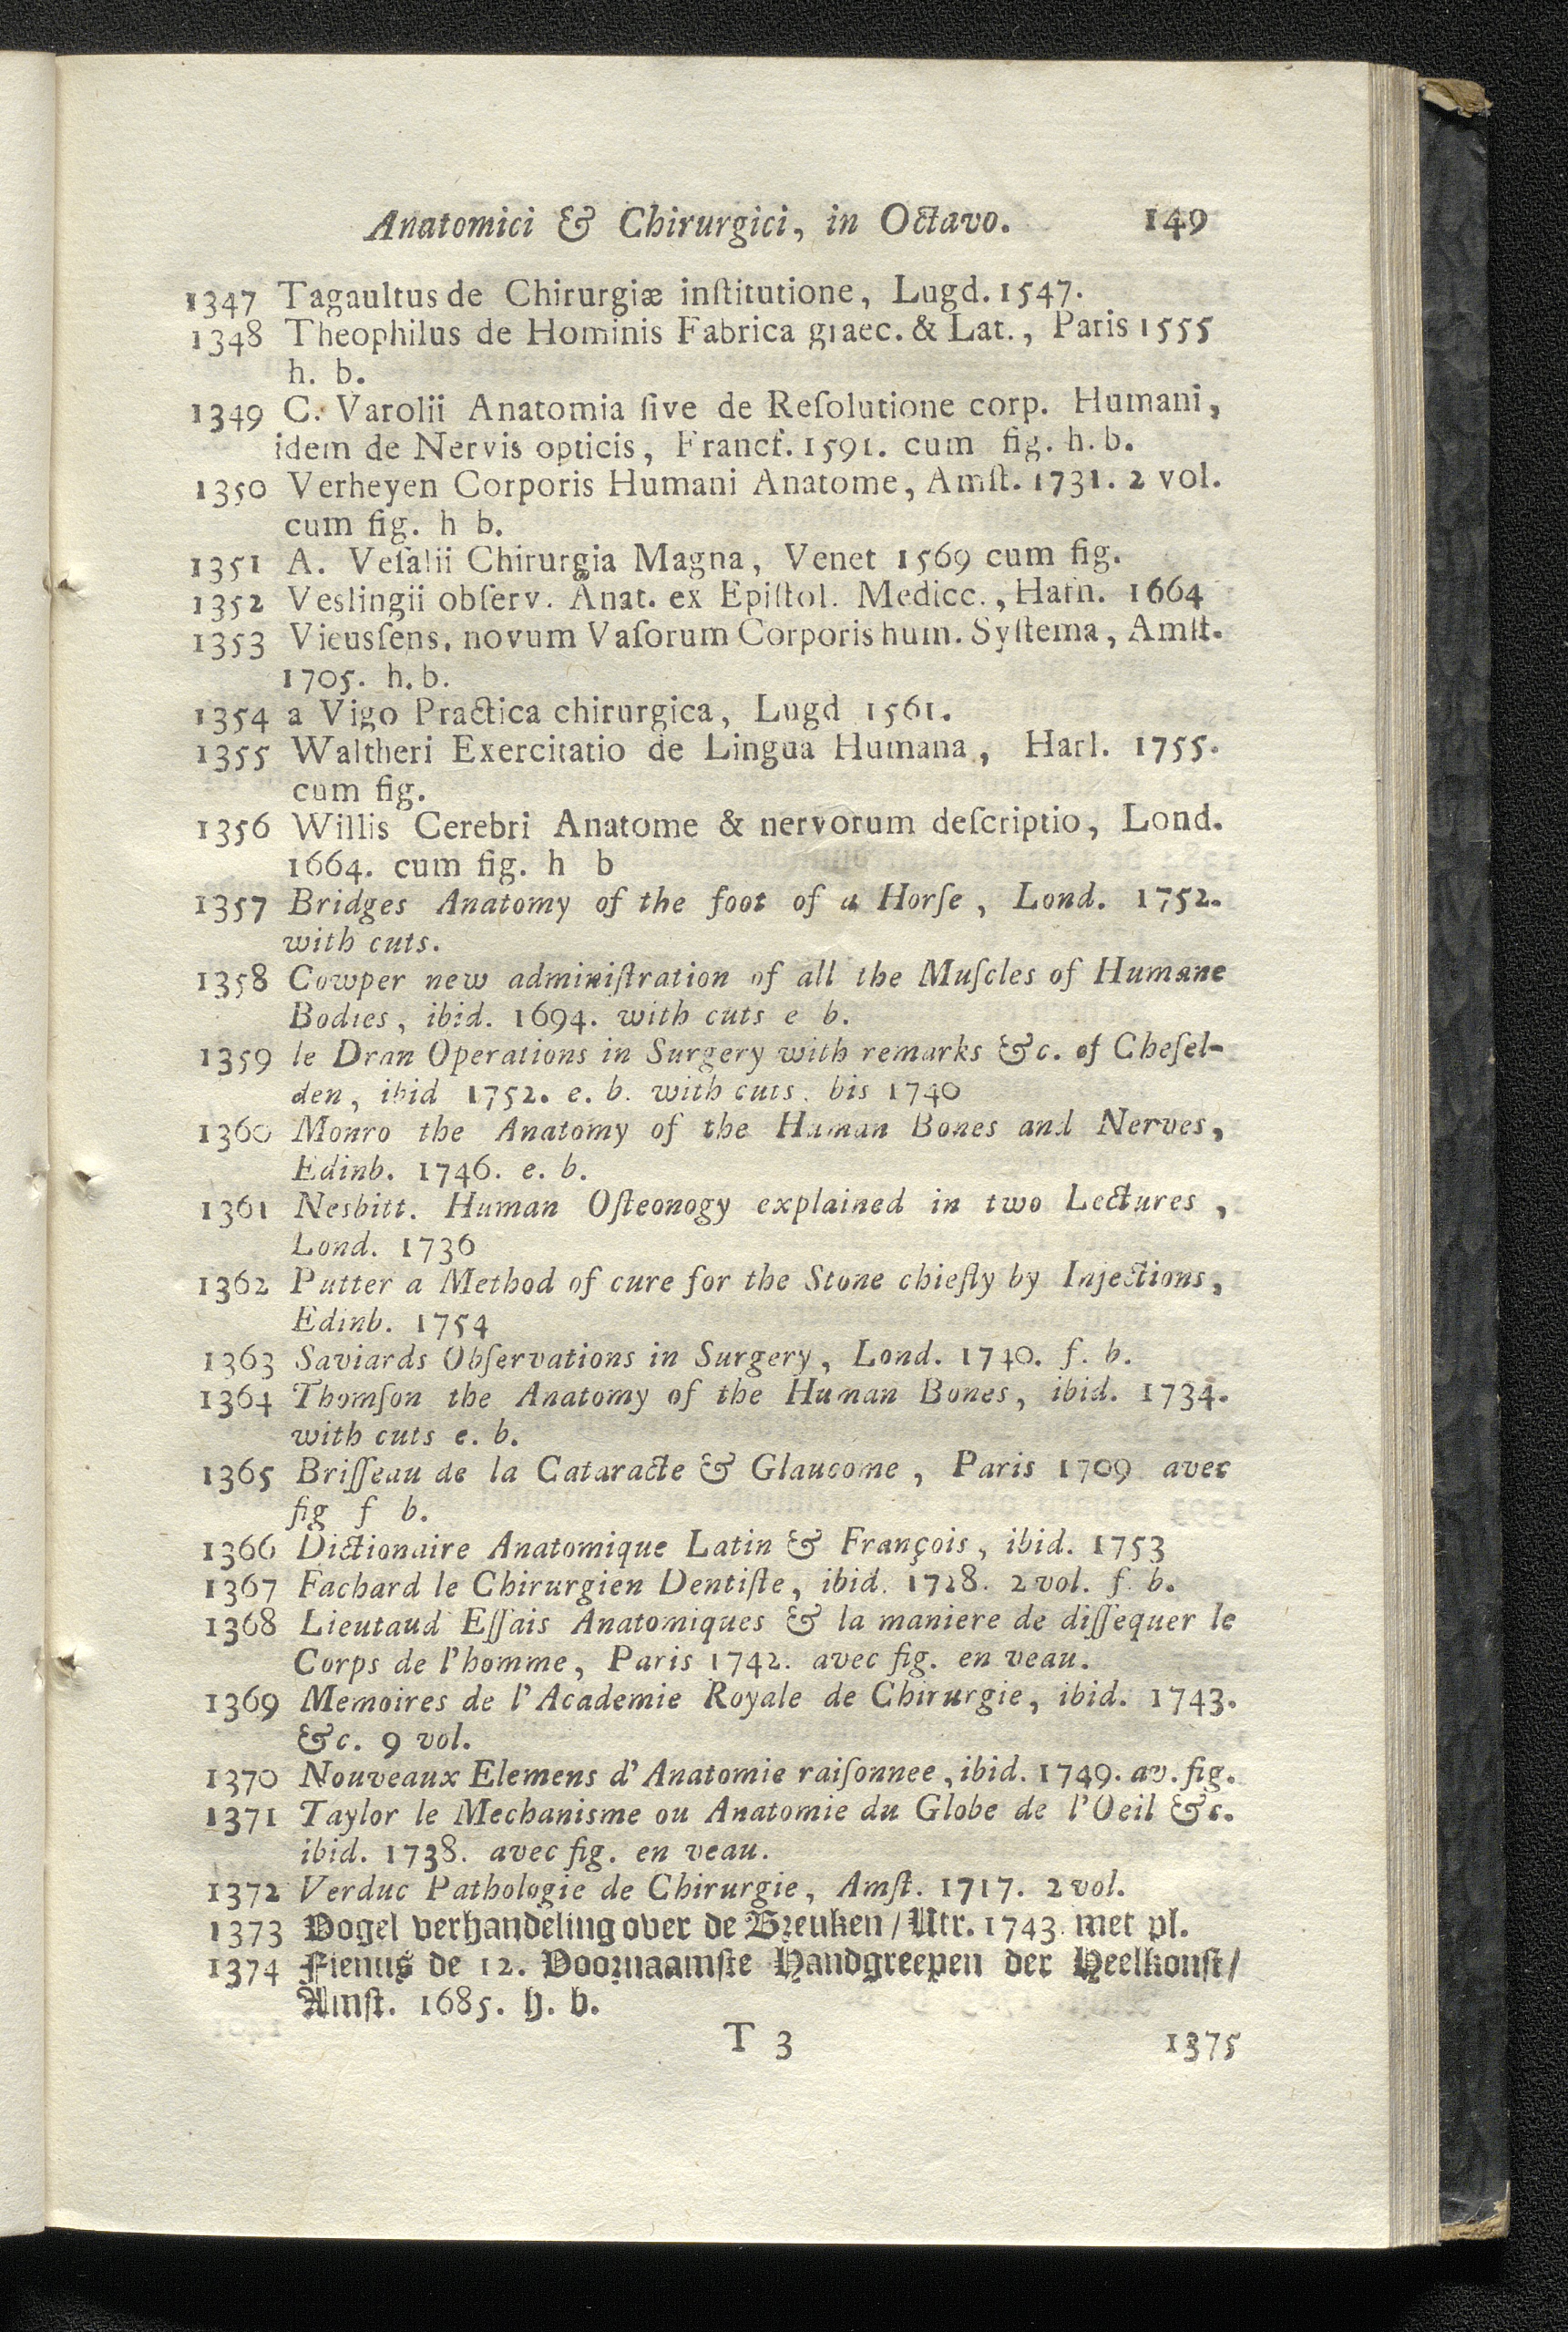 Anatomici & Chirurgici, in Octavo. 149
1347 Tagaultus de Chirurgiæ inſtitutione, Lugd. 1547.
1348 Theophilus de Hominis Fabrica graec. & Lat., Paris 1555
h. b.
1349 C. Varolii Anatomia ſive de Reſolutione corp. Humani,
idem de Nervis opticis, Francf. 1591. cum fig. h. b.
1350 Verheyen Corporis Humani Anatome, Amſt. 1731. 2 vol.
cum fig. h b.
1351 A. Veſalii Chirurgia Magna, Venet 1569 cum fig.
1352 Veslingii obſerv. Anat. ex Epiſtol. Medicc., Hafn. 1664
1353 Vieusſens, novum Vaſorum Corporis hum. Syſtema, Amſt.
1705. h. b.
1354 a Vigo Practica chirurgica, Lugd 1561.
1355 Waltheri Exercitatio de Lingua Humana, Harl. 1755.
cum fig.
1356 Willis Cerebri Anatome & nervorum deſcriptio, Lond.
1664. cum fig. h b
1357 Bridges Anatomy of the foot of a Horſe, Lond. 1752.
with cuts.
1358 Cowper new adminiſtration of all the Muſcles of Humane
Bodies, ibid. 1694. with cuts e b.
1359 le Dran Operations in Surgery with remarks &c. of Cheſel-
den, ibid 1752. e. b. with cuts. bis 1740
1360 Monro the Anatomy of the Human Bones and Nerves,
Edinb. 1746. e. b.
1361 Nesbitt. Human Oſteonogy explained in two Lectures,
Lond. 1736
1362 Putter a Method of cure for the Stone chiefly by Injections,
Edinb. 1754
1363 Saviards Obſervations in Surgery, Lond. 1740. f. b.
1364 Thomſon the Anatomy of the Human Bones, ibid. 1734.
with cuts e. b.
1365 Briſſeau de la Cataracte & Glaucome, Paris 1709 avec
fig f b.
1366 Dictionaire Anatomique Latin & François, ibid. 1753
1367 Fachard le Chirurgien Dentiſte, ibid. 1728. 2 vol. f. b.
1368 Lieutaud Eſſais Anatomiques & la maniere de diſſequer le
Corps de l'homme, Paris 1742. avec fig. en veau.
1369 Memoires de l'Academie Royale de Chirurgie, ibid. 1743.
&c. 9 vol.
1370 Nouveaux Elemens d'Anatomie raiſonnee, ibid. 1749. av. fig.
1371 Taylor le Mechanisme ou Anatomie du Globe de l'Oeil &c.
ibid. 1738. avec fig. en veau.
1372 Verduc Pathologie de Chirurgie, Amſt. 1717. 2 vol.
1373 Vogel verhandeling over de Breuken / Utr. 1743. met pl.
1374 Fienus de 12. Voornaamſte Handgreepen der Heelkonſt /
Amſt. 1685. h. b.
T 3 1375